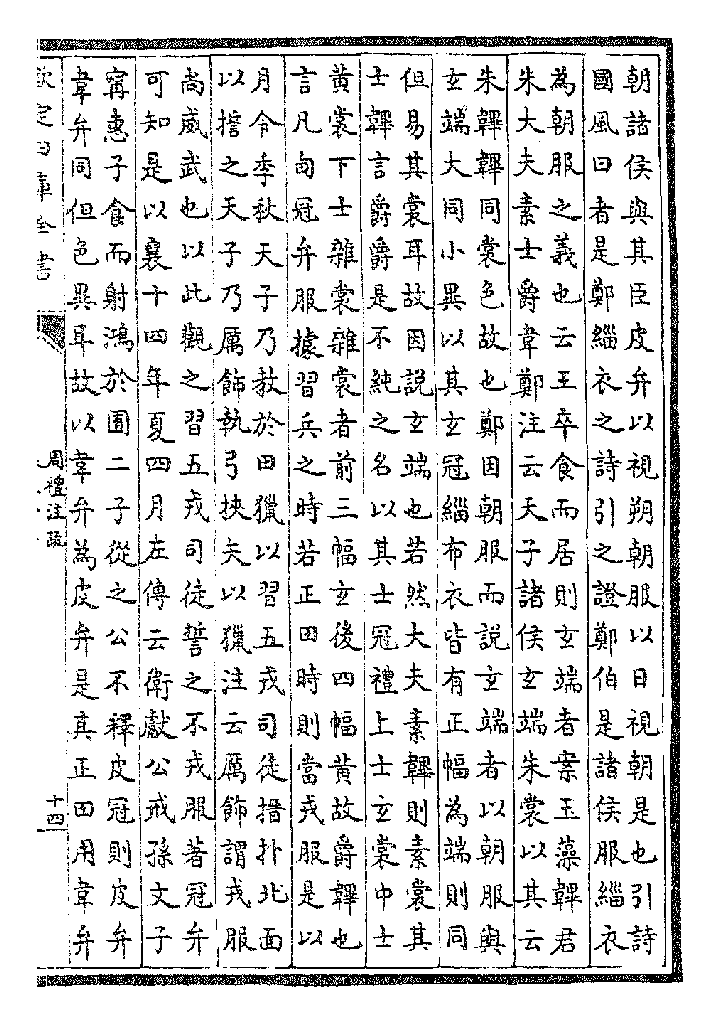 朝諸侯與其臣皮弁以視朔朝服以日視朝是也引詩
國風曰者是鄭緇衣之詩引之證鄭伯是諸侯服緇衣
為朝服之義也云王卒食而居則玄端者案王藻韠君
朱大夫素士爵韋鄭注云天子諸侯玄端朱裳以其云
朱韠韠同裳色故也鄭因朝服而說玄端者以朝服與
玄端大同小異以其玄冠緇布衣皆有正幅為端則同
但易其裳耳故因說玄端也若然大夫素韠則素裳其
士韠言爵爵是不純之名以其士冠禮上士玄裳中士
黃裳下士雜裳雜裳者前三幅玄後四幅黃故爵韠也
言凡甸冠弁服據習兵之時若正田時則當戎服是以
月令季秋天子乃教於田獵以習五戎司徒搢扑北面
以擔之天子乃厲飾執弓挾矢以獵注云厲飾謂戎服
尚威武也以此觀之習五戎司徒誓之不戎服著冠弁
可知是以襄十四年夏四月左傳云衛獻公戒孫文子
甯惠子食而射鴻於囿二子從之公不釋皮冠則皮弁
韋弁同但色異耳故以韋弁為皮弁是其正田用韋弁
欽定四庫全書
周禮注疏
十四